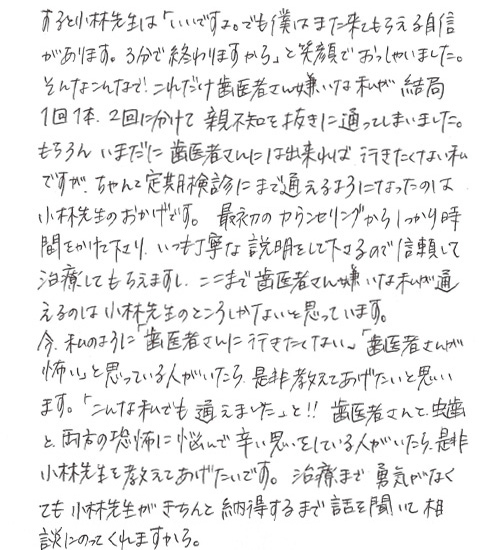 すると小林先生は「いいですよ。でも僕はまた来てもらえる自信
があります。3分で終わりますから」と笑顔でおっしゃいました。
そんなこんなで、これだけ歯医者さん嫌いな私が 結局
1回1本、2回に分けて 親不知を抜きに通ってしまいました。
もちろん いまだに 歯医者さんには出来れば 行きたくない私
ですが、ちゃんと定期検診にまで通えるようになったのは
小林先生のおかげです。 最初のカウンセリングからしっかり時
間をかけて下さり、いつも丁寧な説明をして下さるので信頼して
治療してもらえますし、ここまで歯医者さん嫌いな私が通
えるのは小林先生のところしかないと思っています。
今、私のように「歯医者さんに行きたくない」、「歯医者さんが
怖い」と思っている人がいたら、是非教えてあげたいと思い
ます。「こんな私でも通えました」と!! 歯医者さんと、虫歯
と、両方の恐怖に悩んで辛い思いをしている人がいたら、是非
小林先生を教えてあげたいです。 治療まで 勇気がなく
ても 小林先生が きちんと 納得するまで 話を聞いて 相
談にのってくれますから。